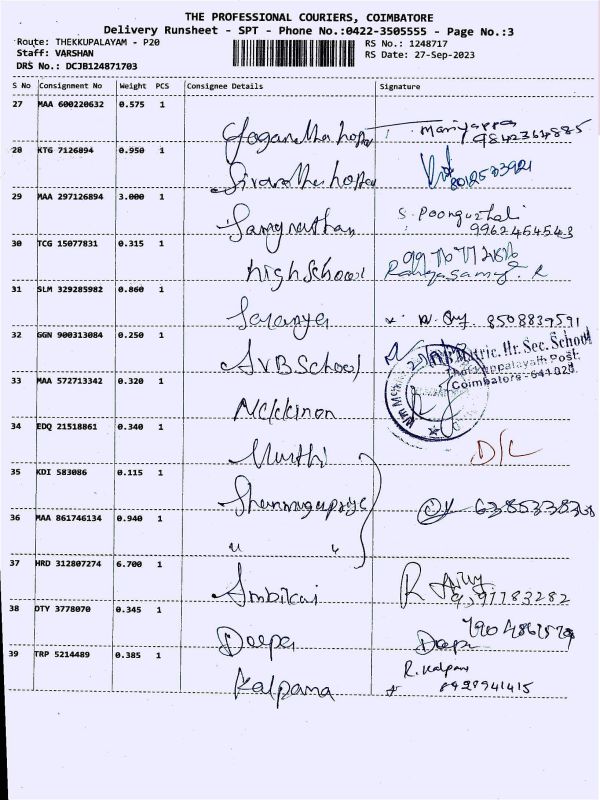 THE PROFESSIONAL COURIERS, COIMBATORE
Delivery Runsheet - SPT - Phone No.:0422-3505555 - Page No.:3
Route: THEKKUPALAYAM - P20
Staff: VARSHAN
DRS No.: DCJB124871703
RS No.: 1248717
RS Date: 27-Sep-2023
S No Consignment No Weight PCS Consignee Details Signature
27 MAA 600220632 0.575 1
Mariyappa
9842364885
28 KTG 7126894 0.950 1
8012533921
29 MAA 297126894 3.000 1
S. Poonguzhali
9962454543
30 TCG 15077831 0.315 1
high School
Rangasamy. R
31 SLM 329285982 0.860 1
Saranya 8508839591
32 GGN 900313084 0.250 1
SVB School
Matric. Hr. Sec. School
Thekkupalayam Post
Coimbatore - 641 020
33 MAA 572713342 0.320 1
34 EDQ 21518861 0.340 1
Murthi D/C
35 KDI 583086 0.115 1
Shanmugapriya
36 MAA 861746134 0.940 1
" "
37 HRD 312807274 6.700 1
Ambikai
38 DTY 3778070 0.345 1
Deepa Deepa
39 TRP 5214489 0.385 1
Kalpana R. Kalpana
8929941415